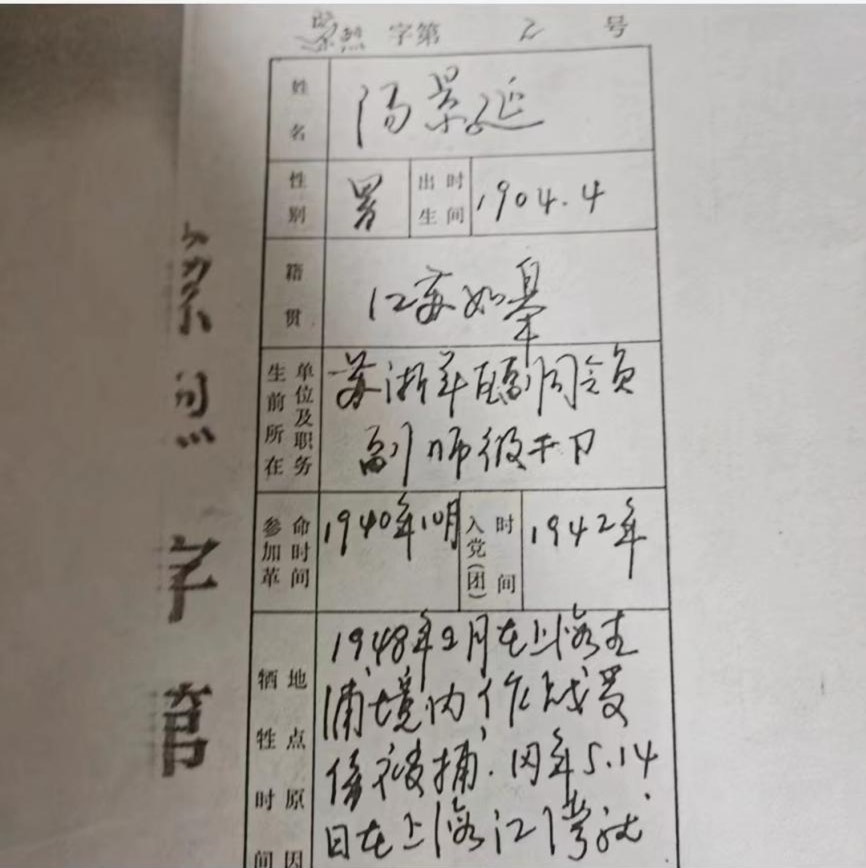 字第 2 号
姓名 汤景延
性别 男 出生时间 1904.4
籍贯 江苏如皋
生前所在单位及职务 苏浙军区副司令员
副师级干部
参加革命时间 1940年10月 入党(团)时间 1942年
牺牲时间地点原因 1948年2月在上海青
浦境内作战受
伤被捕.同年5.14
日在上海江湾就
字第